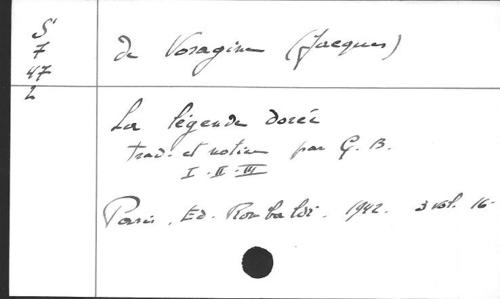 S'
7
47
2
de Voragine (Jacques)
La légende dorée
trad. et notice par G. B.
I - II - III
Paris, Ed. Rombaldi. 1942. 3 vol. 16-